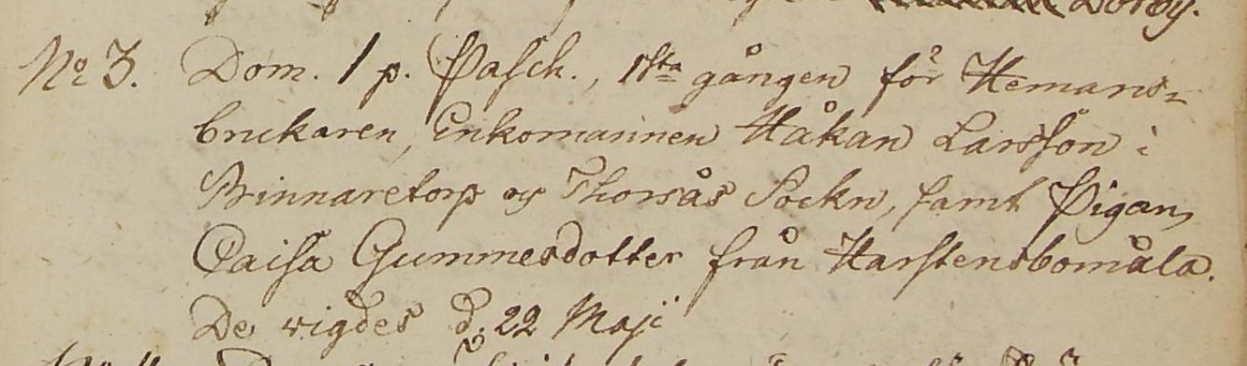 Dorby.
No 3. Dom. 1 p. Pasch., 1sta gången för Hemans-
brukaren, Enkomannen Håkan Larsson i
Binnaretorp og Thorsås Sockn, samt Pigan,
Caisa Gummesdotter från Karstensbomåla.
De wigdes d. 22 Maji